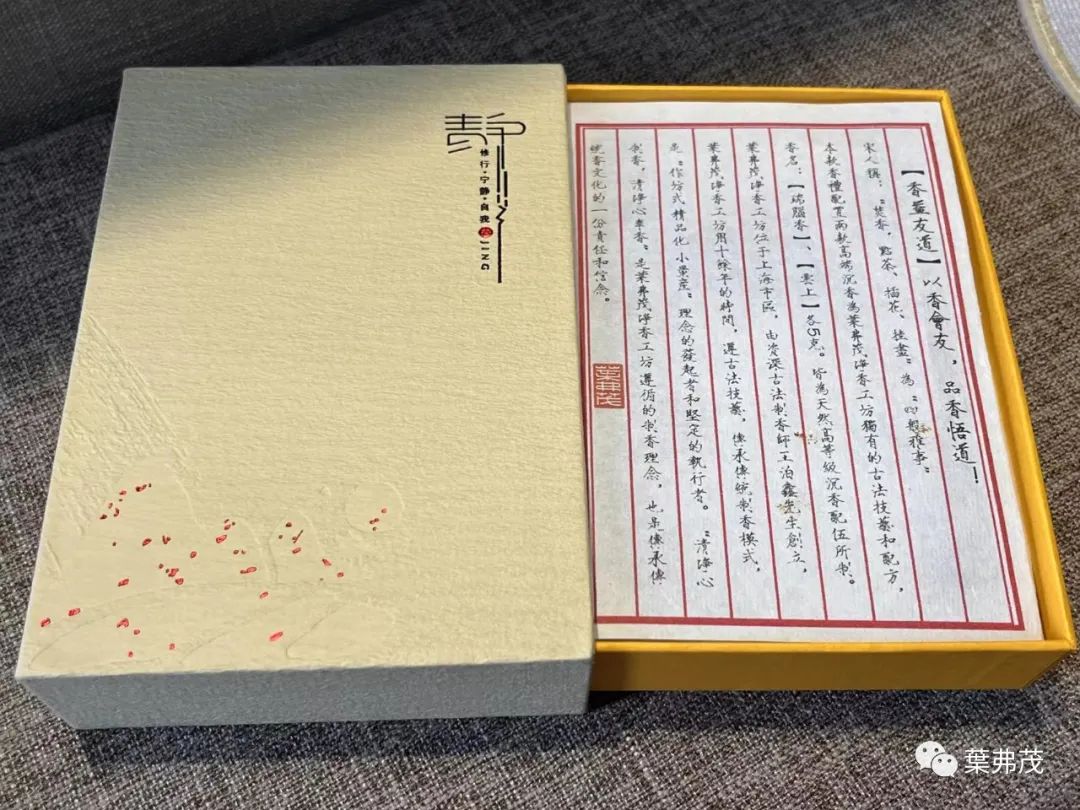 静
修行·宁静·自我
JING
【香薑友道】以香會友，品香悟道！
宋人撰：“焚香，點茶、插花、挂畫”為“四般雅事”
本款香禮配置两款高端沉香為葉弗茂淨香工坊獨有的古法技藝和配方，
香名：【瑞腦香】、【雲上】各5克。皆為天然高等級沉香配伍所制。
葉弗茂淨香工坊位于上海市區，由资深古法制香師王泊鑫先生創立，
葉弗茂淨香工坊用十餘年的時間，遵古法技藝，傳承傳統制香模式，
是“作坊式精品化小量産”理念的發起者和堅定的執行者。“清淨心
制香，清淨心奉香”是葉弗茂淨香工坊遵循的制香理念，也是傳承傳
統香文化的一份責任和信念。
葉弗茂
葉弗茂